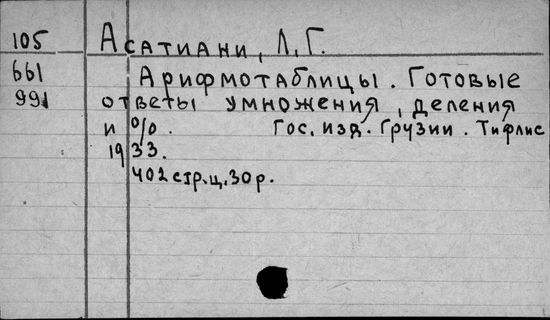 105 Асатиани, Л.Г.
661 Арифмотаблицы. Готовые
991 ответы умножения, деления
и %. Гос. изд. Грузии. Тифлис
1933.
402 стр. ц. 30 р.